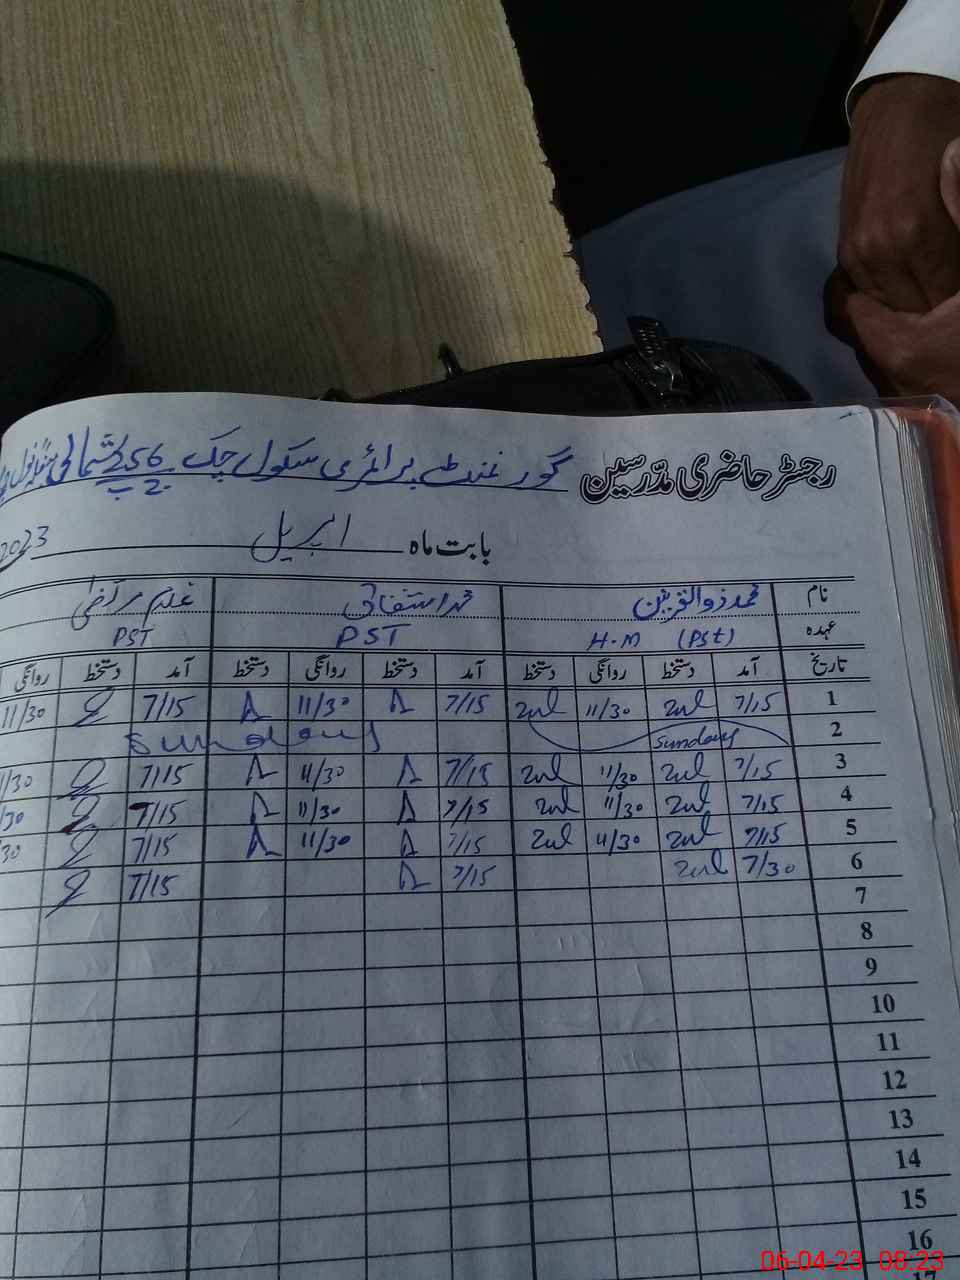 رجسٹر حاضری مدّرسین گورنمنٹ پرائمری سکول چک 256 شمالی
بابت ماہ اپریل 2023
نام محمد ذوالقرنین محمد اشفاق غلام مرتضی
عہدہ H.M (PST) PST PST
تاریخ آمد دستخط روانگی دستخط آمد دستخط روانگی دستخط آمد دستخط روانگی
1 7/15 Zul 11/30 Zul 7/15 11/30 7/15 11/30
2 Sunday Sunday
3 7/15 Zul 11/30 Zul 7/15 11/30 7/15 11/30
4 7/15 Zul 11/30 Zul 7/15 11/30 7/15 /30
5 7/15 Zul 11/30 Zul 7/15 11/30 7/15 /30
6 7/30 Zul 7/15 7/15
7
8
9
10
11
12
13
14
15
16
06-04-23 08:23